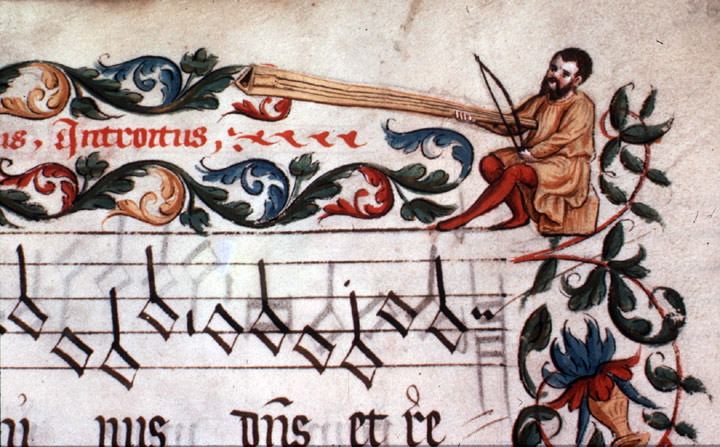 Introitus,
nus dñs et re